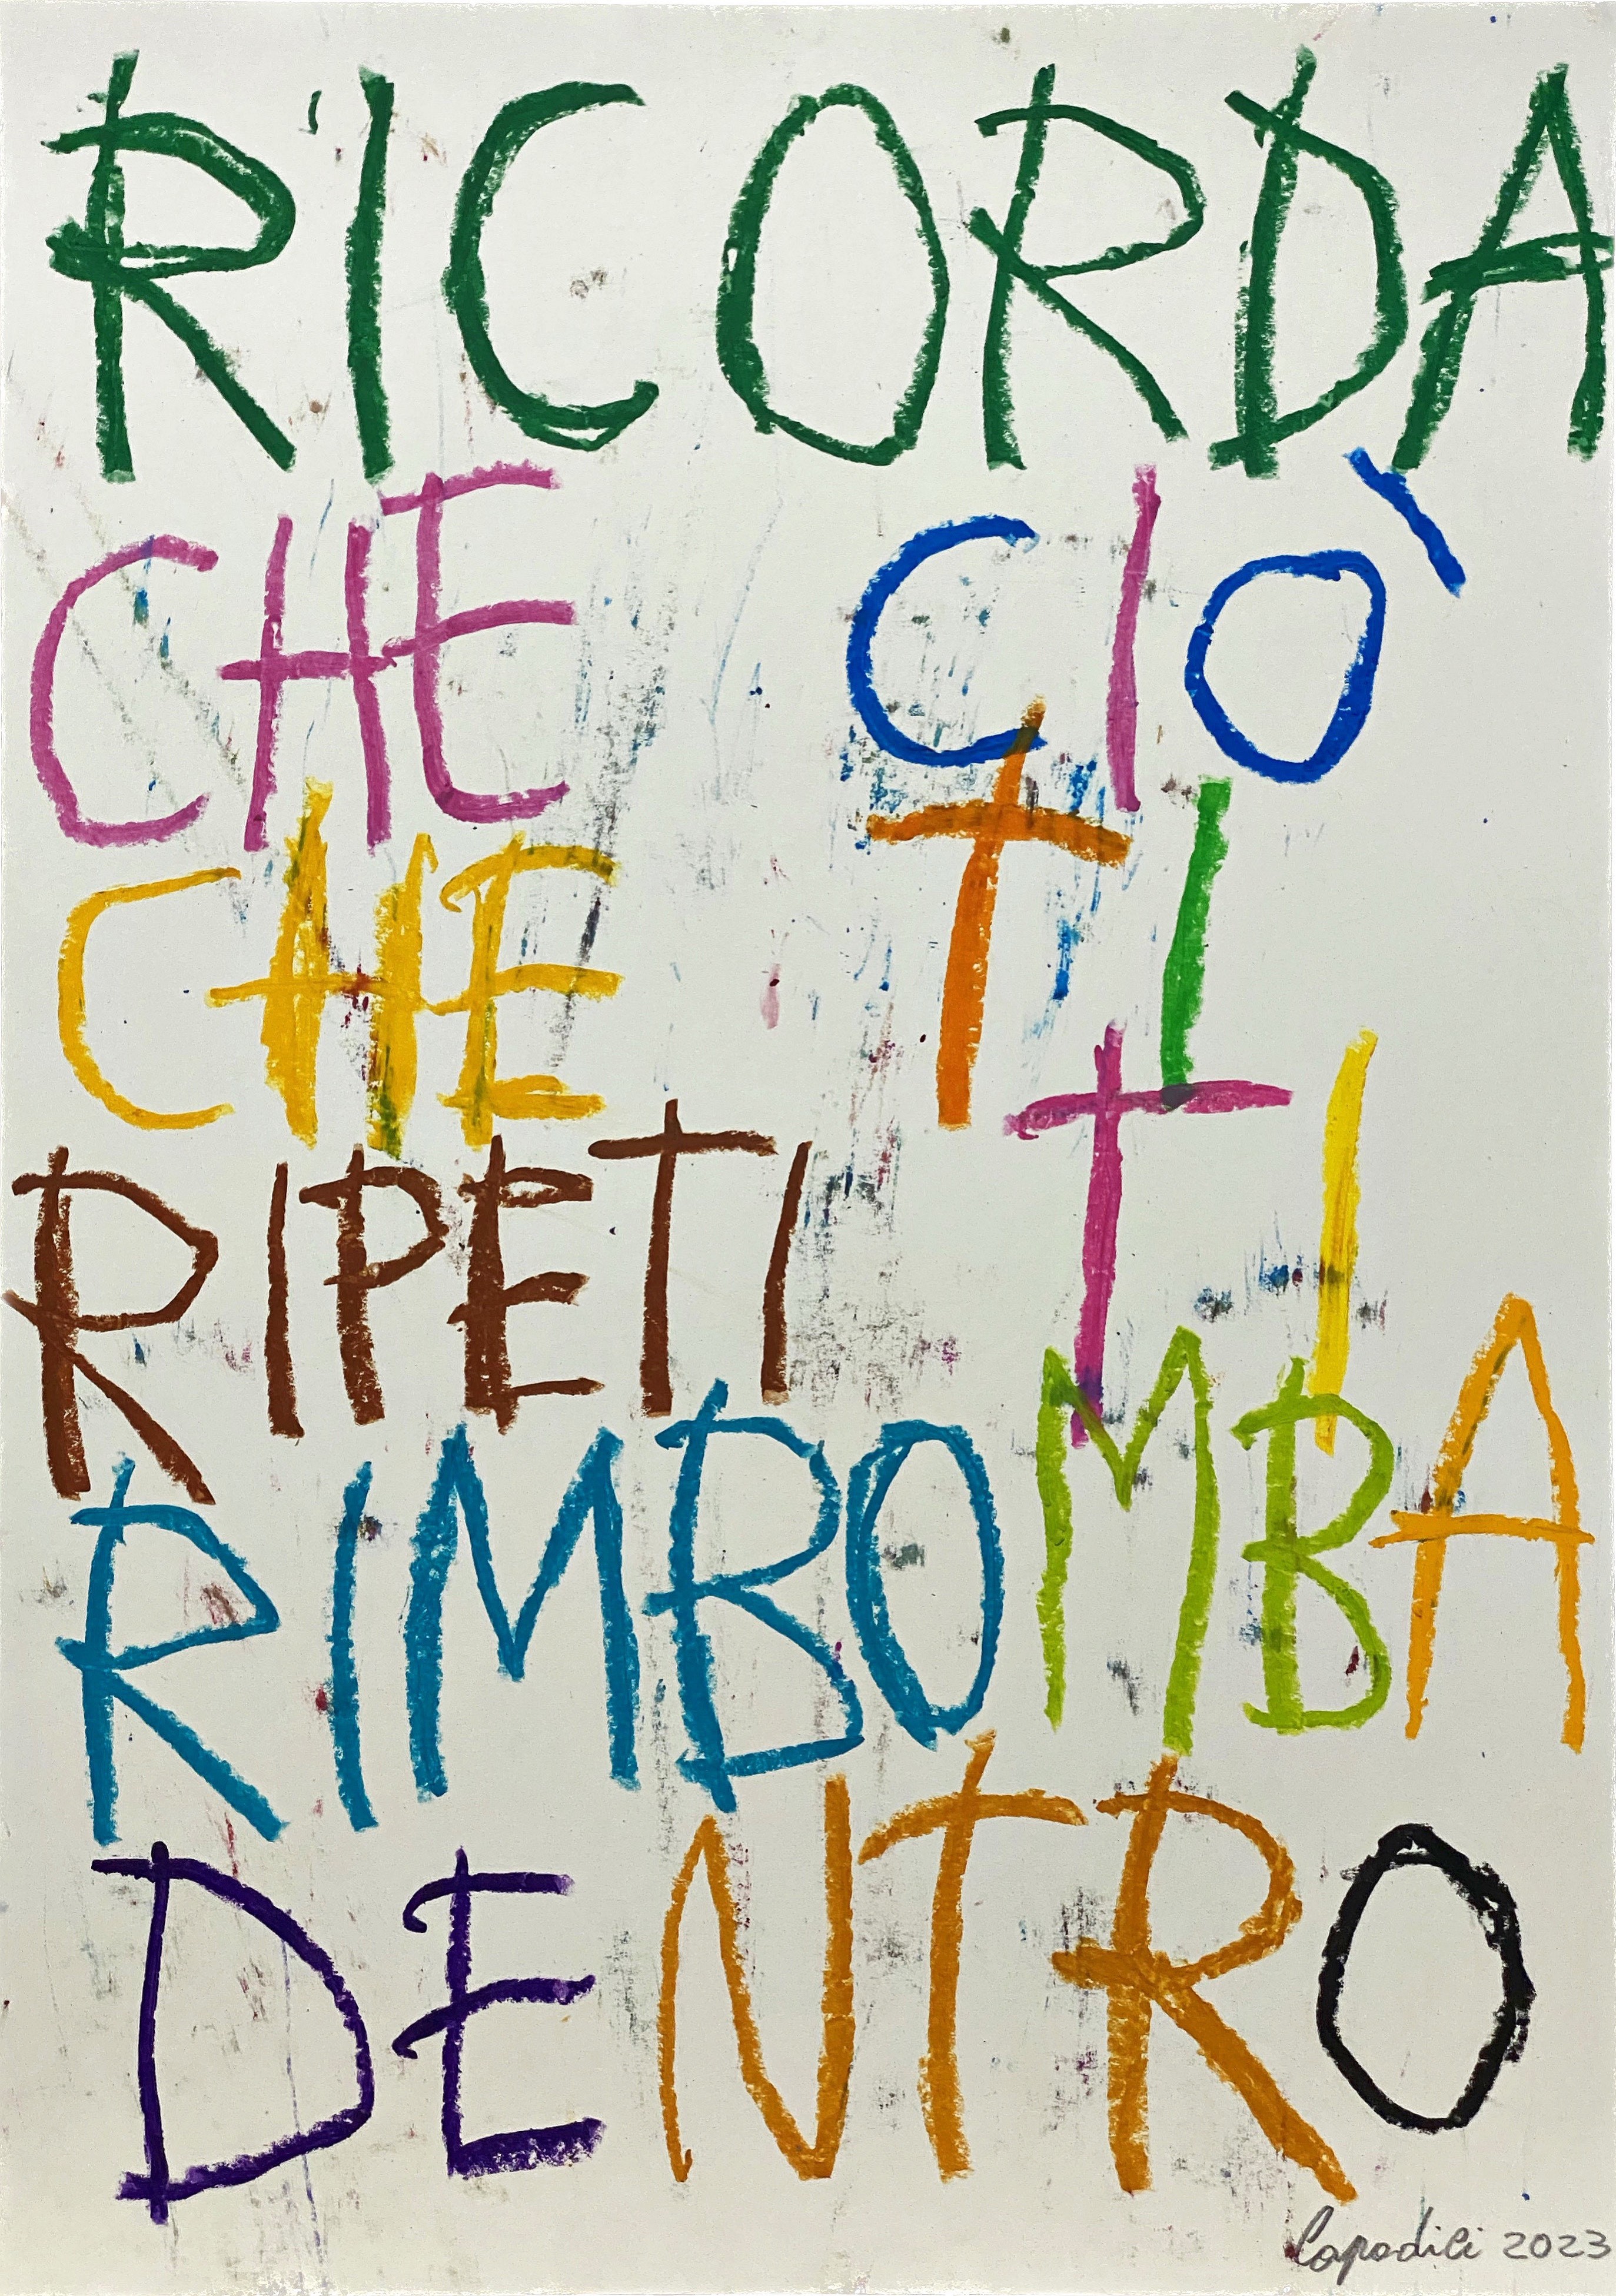 RICORDA
CHE CIÒ
CHE TI
RIPETI TI
RIMBOMBA
DENTRO
Capodici 2023